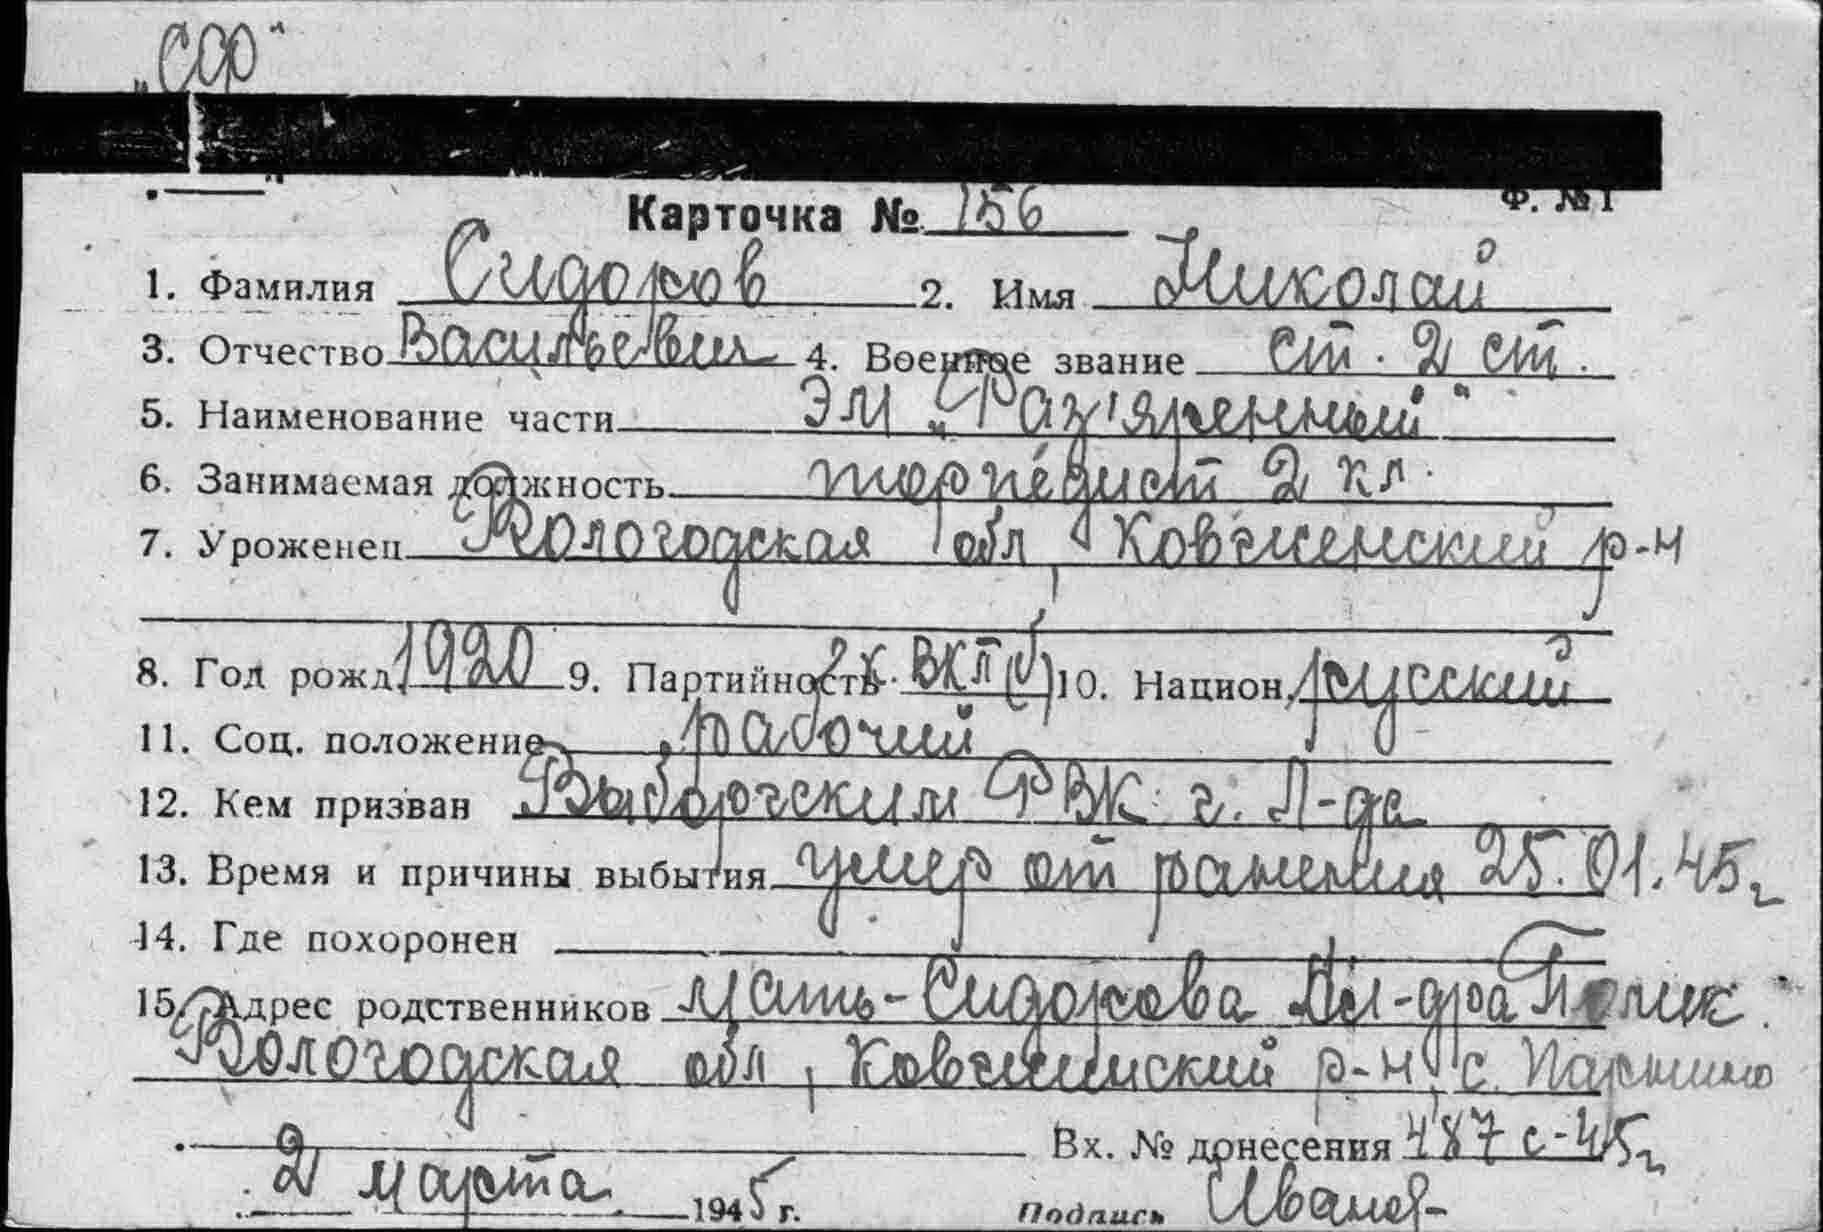 „СФ"
Ф. №1
Карточка № 156
1. Фамилия Сидоров 2. Имя Николай
3. Отчество Васильевич 4. Военное звание ст. 2 ст.
5. Наименование части ЭМ „Раз'яренный"
6. Занимаемая должность торпедист 2 кл.
7. Уроженец Вологодская обл, Ковжинский р-н
8. Год рожд. 1920 9. Партийность к. ВКП(б) 10. Национ. русский
11. Соц. положение рабочий
12. Кем призван Выборгским РВК г. Л-да
13. Время и причины выбытия умер от ранения 25.01.45г
14. Где похоронен
15. Адрес родственников мать-Сидорова
Вологодская обл, Ковжинский р-н, с.
Вх. № донесения 487с-45г
2 марта 1945 г. Подпись Иванов